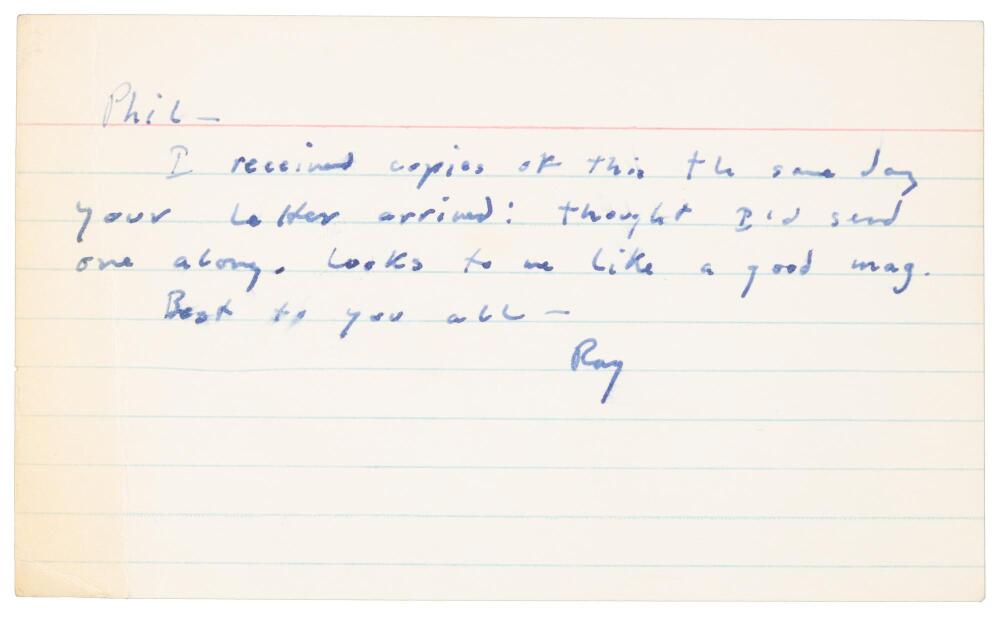 Phil —
I received copies of this the same day
your letter arrived: thought I'd send
one along. Looks to me like a good mag.
Best to you all —
Ray